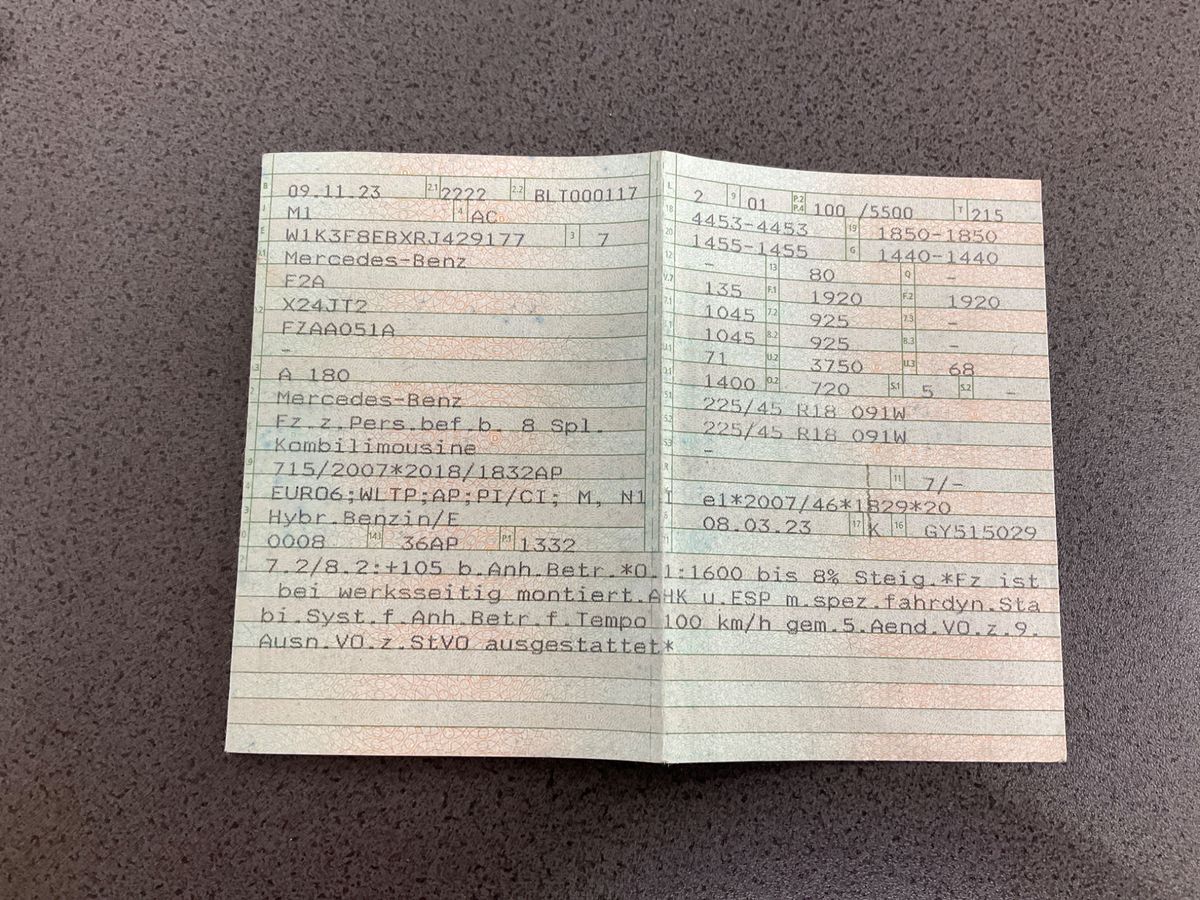 B 09.11.23 2.1 2222 2.2 BLT000117
J M1 4 AC
E W1K3F8EBXRJ429177 3 7
Mercedes-Benz
F2A
X24JT2
FZAA051A
-
A 180
Mercedes-Benz
Fz.z.Pers.bef.b. 8 Spl.
Kombilimousine
715/2007*2018/1832AP
EURO6;WLTP;AP;PI/CI; M, N1 I
Hybr.Benzin/E
0008 14.1 36AP P.1 1332
L 2 9 01 P.2 P.4 100 /5500 T 215
18 4453-4453 19 1850-1850
20 1455-1455 G 1440-1440
12 - 13 80 Q -
V.7 135 F.1 1920 F.2 1920
7.1 1045 7.2 925 7.3 -
8.1 1045 8.2 925 8.3 -
U.1 71 U.2 3750 U.3 68
O.1 1400 O.2 720 S.1 5 S.2 -
15.1 225/45 R18 091W
15.2 225/45 R18 091W
15.3 -
R 11 7/-
K e1*2007/46*1829*20
6 08.03.23 17 K 16 GY515029
21
7.2/8.2:+105 b.Anh.Betr.*O.1:1600 bis 8% Steig.*Fz ist
bei werksseitig montiert.AHK u.ESP m.spez.fahrdyn.Sta
bi.Syst.f.Anh.Betr.f.Tempo 100 km/h gem.5.Aend.VO.z.9.
Ausn.VO.z.StVO ausgestattet*